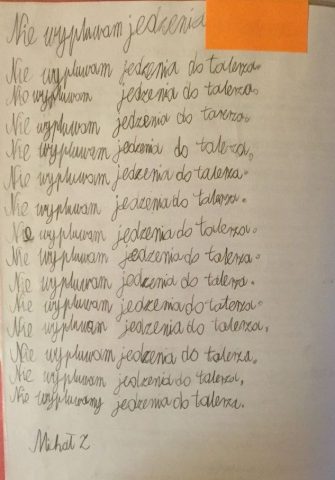 Nie wypluwam jedzenia
Nie wypluwam jedzenia do talerza.
Nie wypluwam jedzenia do talerza.
Nie wypluwam jedzenia do tarerza.
Nie wypluwam jedzenia do talerza.
Nie wypluwam jedzenia do talerza.
Nie wypluwam jedzenia do talerza.
Nie wypluwam jedzenia do talerza.
Nie wypluwam jedzenia do talerza.
Nie wypluwam jedzenia do talerza.
Nie wypluwam jedzenia do talerza.
Nie wypluwam jedzenia do talerza.
Nie wypluwam jedzenia do talerza.
Nie wypluwam jedzenia do talerza.
Nie wypluwamy jedzenia do talerza.
Michał Z